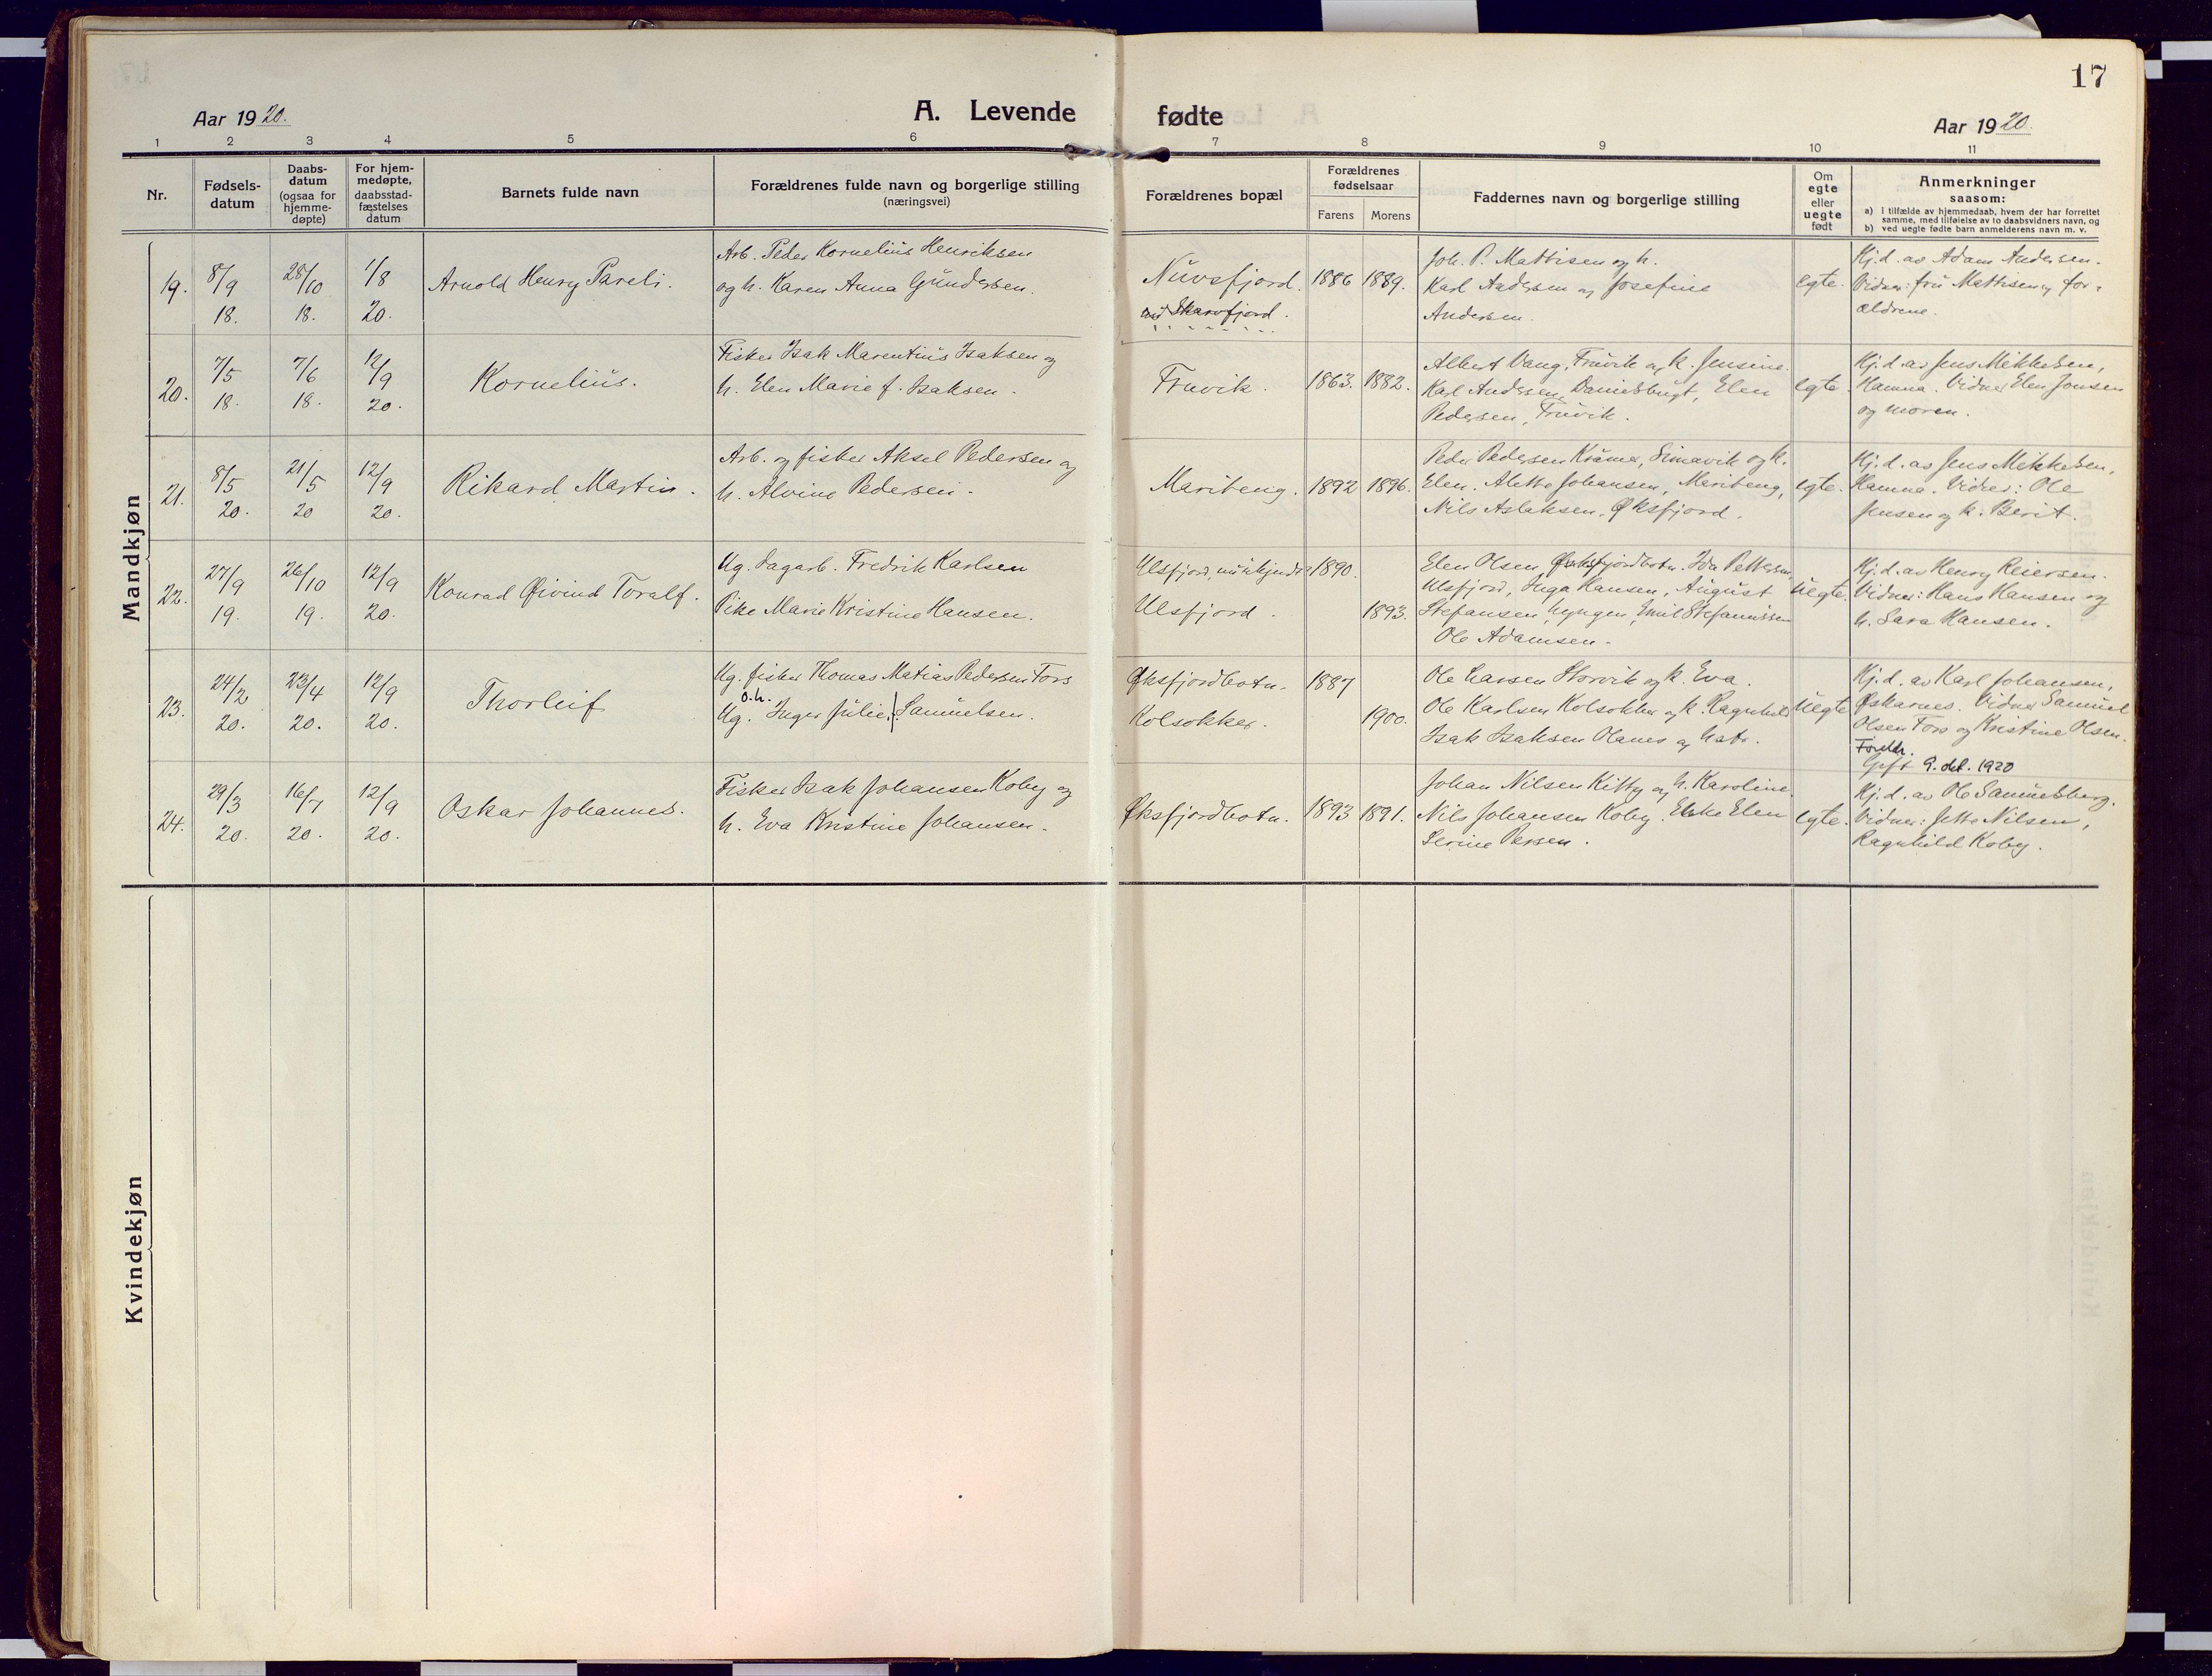 17
Aar 1920.
A. Levende fødte
Aar 1920.
1 2 3 4 5 6 7 8 9 10 11
Nr.
Fødsels-
datum
Daabs-
datum
(ogsaa for
hjemme-
døpte)
For hjem-
medøpte,
daabsstad-
fæstelses
datum
Barnets fulde navn
Forældrenes fulde navn og borgerlige stilling
(næringsvei)
Forældrenes bopæl
Forældrenes
fødselsaar
Farens Morens
Faddernes navn og borgerlige stilling
Om
egte
eller
uegte
født
Anmerkninger
saasom:
a) I tilfælde av hjemmedaab, hvem der har forrettet
samme, med tilføielse av to daabsvidners navn, og
b) ved uegte fødte barn anmelderens navn m. v.
Mandkjøn
19.
8/9
18.
28/10
18.
1/8
20.
Arnold Henry Pareli.
Arb. Peder Kornelius Henriksen
og h. Karen Anna Gundersen.
Nuvsfjord.
Skarvfjord.
1886 1889.
Joh. P. Mathisen og h.
Karl Andersen og Josefine
Andersen.
egte.
Hj.d. av Adam Andersen.
Vidner: fru Mathisen og for-
ældrene.
20.
7/5
18.
7/6
18.
12/9
20.
Kornelius.
Fisker Isak Marentius Isaksen og
h. Elen Marie f. Isaksen.
Fruvik.
1863. 1882.
Albert Vang, Fruvik og h. Jensine.
Karl Andersen, Danielsbugt, Elen
Pedersen, Fruvik.
egte.
Hj.d. av Jens Mikkelsen,
Hamna. Vidner Elen Jonsen
og moren.
21.
8/5
20.
21/5
20
12/9
20.
Rikard Martin.
Arb. og fisker Aksel Pedersen og
h. Alvine Pedersen.
Maribeng.
1892 1896.
Peder Pedersen Kramer, Simavik og h.
Elen. Alette Johansen, Maribeng,
Nils Aslaksen, Øksfjord.
egte.
Hj.d. av Jens Mikkelsen,
Hamna. Vidner: Ole
Jensen og h. Berit.
22.
27/9
19.
26/10
19.
12/9
20.
Konrad Øivind Toralf.
Ug. Sagarb. Fredrik Karlsen
Pike Marie Kristine Hansen.
Ulsfjord, nu ukjendt
Ulsfjord.
1890.
1893.
Elen Olsen Øksfjordbotn. Ida Pettersen,
Ulsfjord, Inga Hansen, August
Stefansen, Lyngen, Emil Stefanussen
Ole Adamsen.
Uegte.
Hj.d. av Henry Reiersen.
Vidner: Hans Hansen og
h. Sara Hansen.
23.
24/2
20.
23/4
20.
12/9
20.
Thorleif
Ug. fisker Thomas Matias Pedersen Fors
o.h.
Ug. Inger Julie Samuelsen.
Øksfjordbotn.
Kolsokker.
1887
1900.
Ole Larsen Storvik og h. Eva.
Ole Karlsen Kolsokker og h. Ragnhild
Isak Isaksen Olanes og hatr.
Uegte
Hj.d. av Karl Johansen,
Øskarnes. Vidner Samuel
Olsen Fors og Kristine Olsen.
Foreldr.
Gift 9. okt. 1920
24.
29/3
20.
16/7
20.
12/9
20.
Oskar Johannes.
Fisker Isak Johansen Koby og
h. Eva Kristine Johansen.
Øksfjordbotn.
1893 1891.
Johan Nilsen Kitty og h. Karoline.
Nils Johansen Koby. Enke Elen
Serine Persen.
egte.
Hj.d. av Ole Samuelsberg.
Vidner: Jette Nilsen,
Ragnhild Koby.
Kvindekjøn